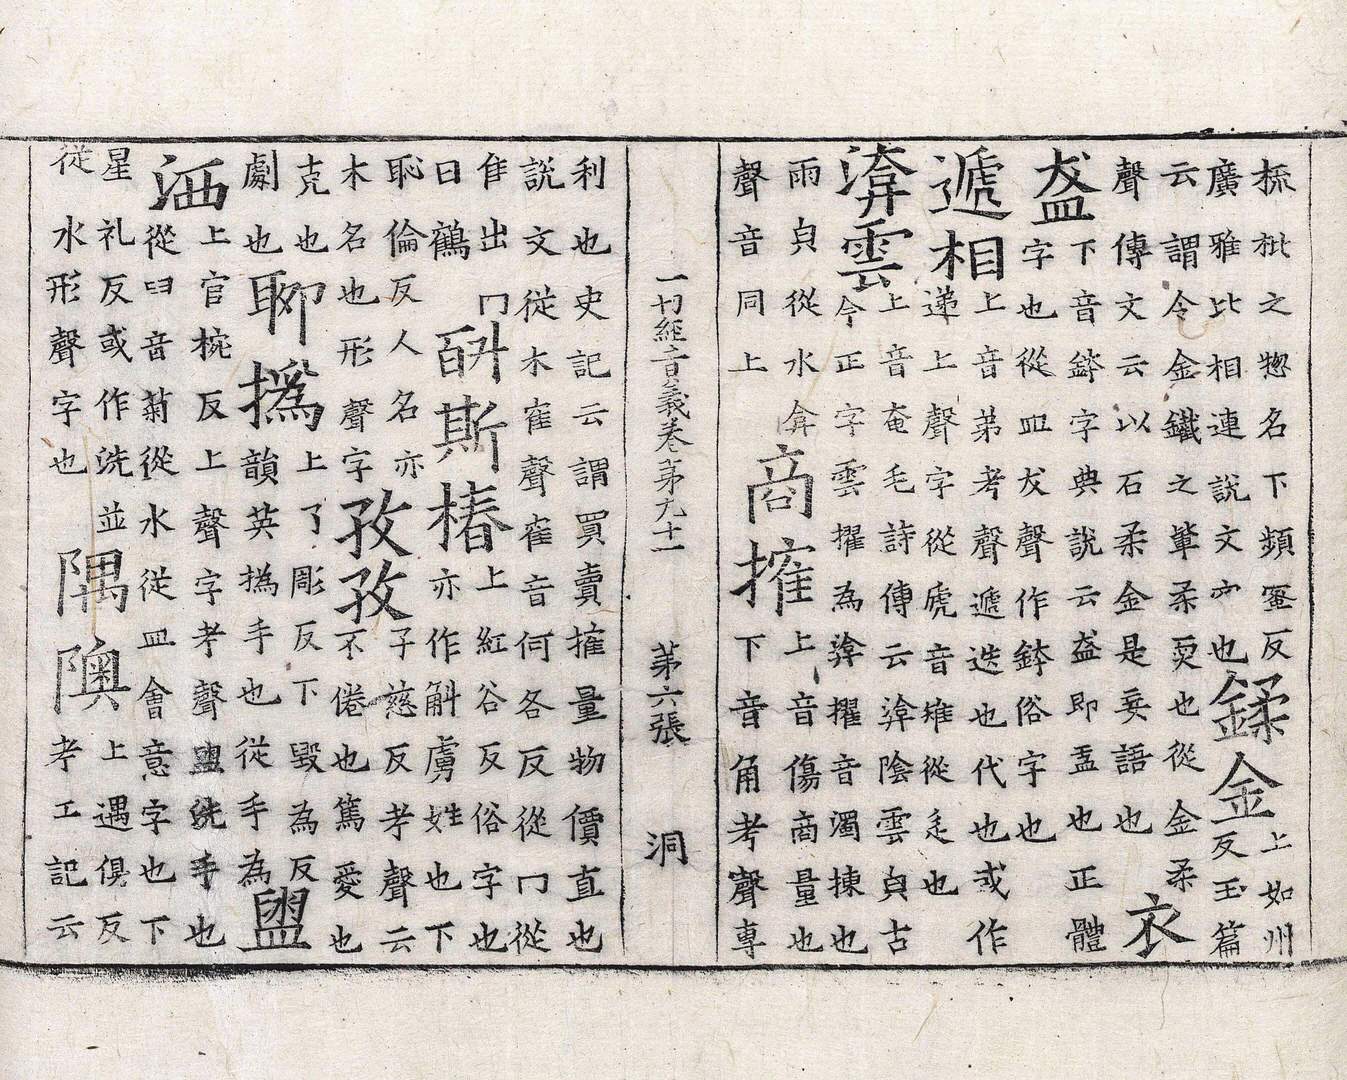 梳枇之揔名下頻蜜反
廣雅比相連說文也
鍒金
上如州
反玉篇
云謂令金鐵之柔耎也從金柔
聲傳文云以石柔金是妄語也
衣
盋
下音鉢字典說云盋即盂也正體
字也從皿犮聲作鉢俗字也
遞相
上音弟考聲遞迭也代也或作
递上聲字從虒音雉從辵也
渰雲
上音奄毛詩傳云渰陰雲皃古
今正字雲擢為渰擢音濁揀也
雨皃從水弇
聲音同上
商搉
上音傷商量也
下音角考聲專
一切經音義卷第九十一 第六張 洞
利也史記云謂買賣搉量物價直也
說文從木隺聲隺音何各反從冂從
隹出冂
曰鶴
斯椿
上紅谷反俗字也
亦作斛虜姓也下
恥倫反人名亦
木名也形聲字
孜孜
子慈反考聲云
不倦也篤愛也
克也
劇也
聊撝
上了彫反下毀為反
韻英撝手也從手為
盥
洒
上官椀反上聲字考聲盥洗手也
從臼音菊從水從皿會意字也下
星礼反或作洗並
從水形聲字也
隅隩
上遇俱反
考工記云